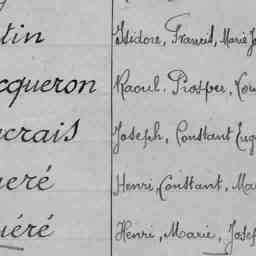 tin Isidore, Francis, Marie Jo
cqueron Raoul, Prosper, Lou
ucrais Joseph, Constant Eug
ueré Henri, Constant, Ma
uéré Henri, Marie, Josep